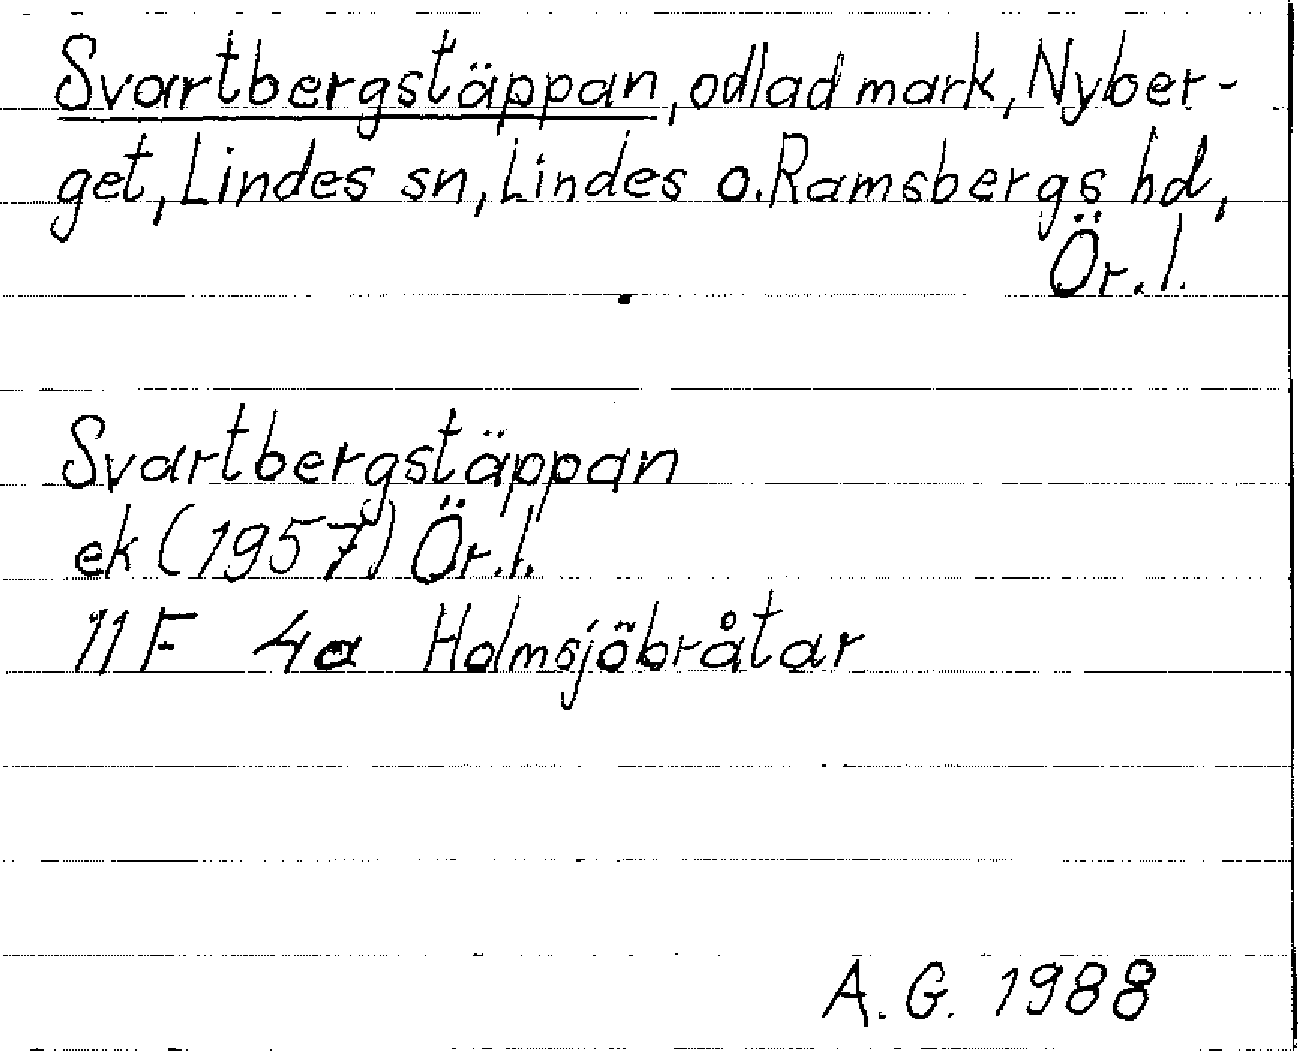 Svartbergstäppan, odlad mark, Nyber-
get, Lindes sn, Lindes o. Ramsbergs hd,
Ör. l.
Svartbergstäppan
ek (1957) Ör. l.
11 F 4a Holmsjöbråtar
A. G. 1988